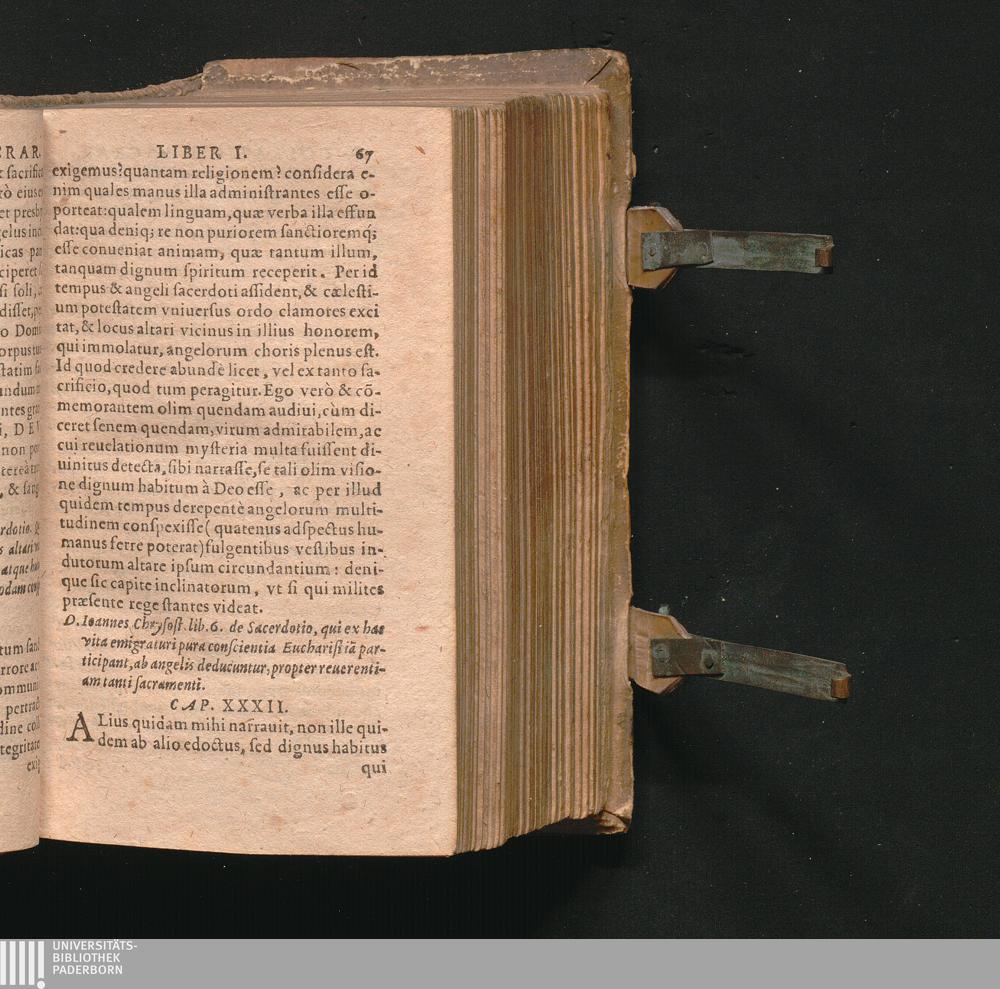 LIBER I. 67
exigemus?quantam religionem? conſidera e-
nim quales manus illa adminiſtrantes eſſe o-
porteat:qualem linguam,quæ verba illa effun
dat:qua deniq; re non puriorem ſanctioremq́;
eſſe conueniat animam, quæ tantum illum,
tanquam dignum ſpiritum receperit. Per id
tempus & angeli ſacerdoti aſſident,& cæleſti-
um poteſtatem vniuerſus ordo clamores exci
tat,& locus altari vicinus in illius honorem,
qui immolatur, angelorum choris plenus eſt.
Id quod credere abundè licet, vel ex tanto ſa-
crificio,quod tum peragitur. Ego verò & cõ-
memorantem olim quendam audiui,cùm di-
ceret ſenem quendam,virum admirabilem,ac
cui reuelationum myſteria multa fuiſſent di-
uinitus detecta,ſibi narraſſe,ſe tali olim viſio-
ne dignum habitum à Deo eſſe, ac per illud
quidem tempus derepentè angelorum multi-
tudinem conſpexiſſe( quatenus adſpectus hu-
manus ferre poterat)fulgentibus veſtibus in-
dutorum altare ipſum circundantium: deni-
que ſic capite inclinatorum, vt ſi qui milites
præſente rege ſtantes videat.
D. Ioannes Chryſoſt. lib. 6. de Sacerdotio, qui ex hac
vita emigraturi pura conſcientia Euchariſtiã par-
ticipant,ab angelis deducuntur,propter reuerenti-
am tanti ſacramenti.
CAP. XXXII.
ALius quidam mihi narrauit, non ille qui-
dem ab alio edoctus, ſed dignus habitus
qui
UNIVERSITÄTS-
BIBLIOTHEK
PADERBORN